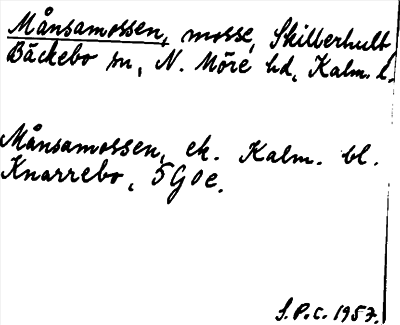 Månsamossen, mosse, Skillerhult
Bäckebo sn, N. Möre hd, Kalm. l.
Månsamossen, ek. Kalm. bl.
Knarrebo, 5G0e.
S.P.C. 1957.